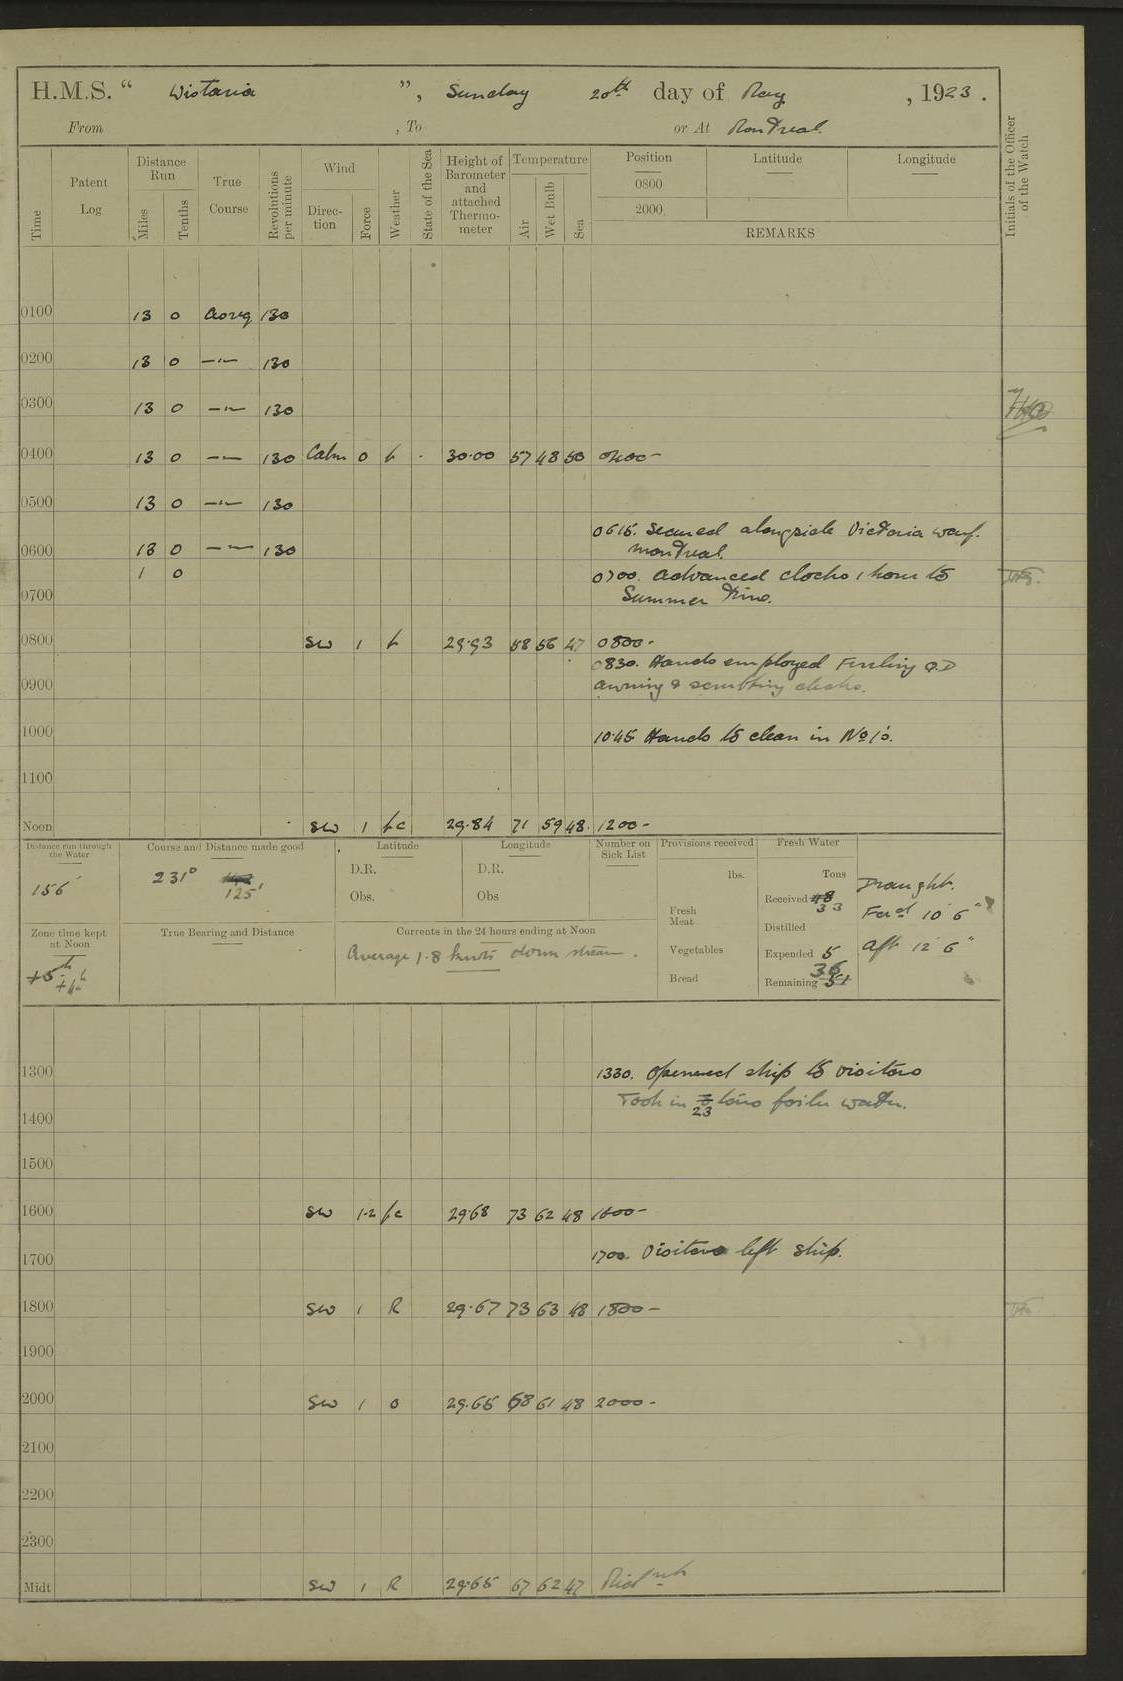 H.M.S. “ Wistaria ”, Sunday 20th day of May, 1923.
From , To or At Montreal.
Time
Patent Log
Distance Run
Miles
Tenths
True Course
Revolutions per minute
Wind
Direction
Force
Weather
State of the Sea
Height of Barometer and attached Thermometer
Temperature
Air
Wet Bulb
Sea
Position Latitude Longitude
0800
2000
REMARKS
Initials of the Officer of the Watch
0100 13 0 130
0200 13 0 —"— 130
0300 13 0 —"— 130
0400 13 0 —"— 130 Calm 0 b 30.00 57 48 50 0400-
0500 13 0 —"— 130
0615. Secured alongside Victoria warf.
0600 13 0 —"— 130 Montreal.
1 0 0700. Advanced clocks 1 hour to
0700 Summer Time.
0800 SW 1 b 29.93 58 56 47 0800-
0830. Hands employed Furling Q.D
0900 awning & scrubbing decks.
1000 10.45 Hands to clean in No 1s.
1100
Noon SW 1 bc 29.84 71 59 48 1200-
Distance run through the Water
156'
Course and Distance made good
231° 125'
Latitude
D.R.
Obs.
Longitude
D.R.
Obs
Number on Sick List
Provisions received
lbs.
Fresh Meat
Vegetables
Bread
Fresh Water
Tons
Received 48 33
Distilled
Expended 5
Remaining 36 51
Draught.
For'd 10' 6"
Aft 12' 6"
Zone time kept at Noon
+5h +4h
True Bearing and Distance
Currents in the 24 hours ending at Noon
Average 1.8 knots down stream.
1300 1330. Opened ship to visitors
Took in 23 tons boiler water.
1400
1500
1600 SW 1-2 bc 29.68 73 62 48 1600-
1700 1700. Visitors left ship.
1800 SW 1 R 29.67 73 63 48 1800-
1900
2000 SW 1 0 29.65 68 61 48 2000-
2100
2200
2300
Midt SW 1 R 29.65 67 62 47 Midnt